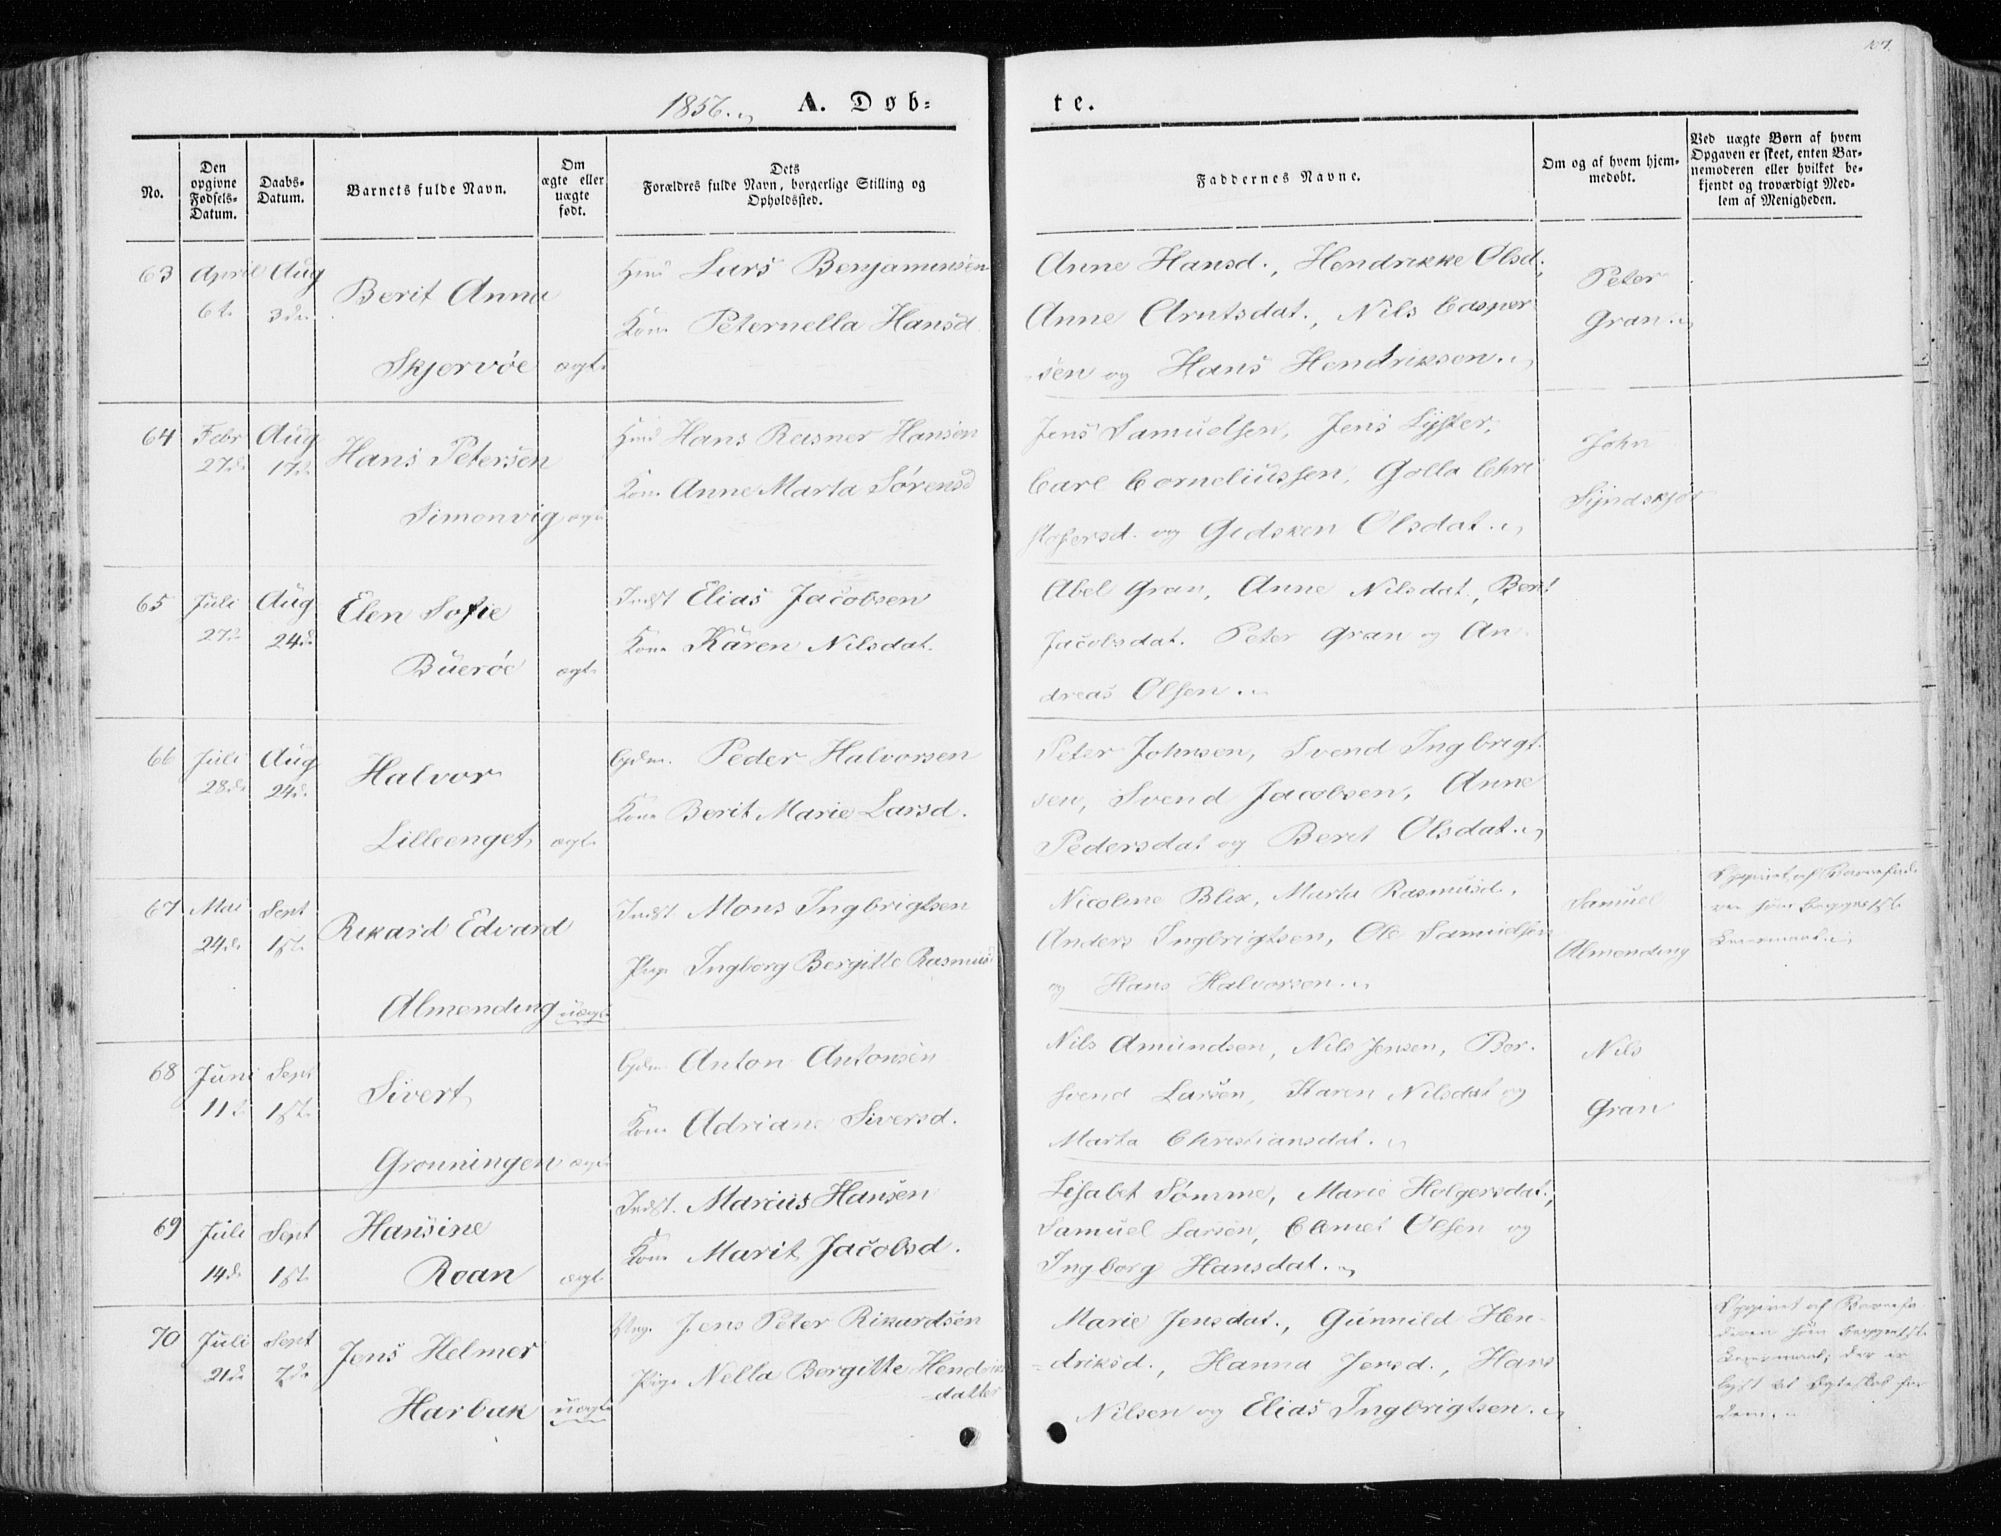 107.
1856. A. Døb-
te.
No.
Den
opgivne
Fødsels-
Datum.
Daabs-
Datum.
Barnets fulde Navn.
Om
ægte eller
uægte
født.
Dets
Forældres fulde Navn, borgerlige Stilling og
Opholdssted.
Faddernes Navne.
Om og af hvem hjem-
medøbt.
Ved uægte Børn af hvem
Opgaven er skeet, enten Bar-
nemoderen eller hvilket be-
kjendt og troværdigt Med-
lem af Menigheden.
63 April Aug
6te 3de
Berit Anna
Skjervöe ægte
Lars Benjaminsen
Kone Peternella Hansd.
Anne Hansd., Hendrikke Olsd.,
Anne Arntsdat., Nils Casper
sen og Hans Hendriksen.
Peter
Gran.
64 Febr Aug
27de 17de
Hans Petersen
Simonvig ægte
Hans Rasner Hansen
Kone Anne Marta Sørensd
Jens Samuelsen, Jens Lyster,
Carl Corneliussen, Golla Chri
stofersd. og Gidsken Olsdat.
John
65 Juli Aug
27de 24de
Elen Sofie
Buerøe ægte
Indst Elias Jacobsen
Kone Karen Nilsdat.
Abel Gran, Anne Nilsdat., Berit
Jacobsdat. Peter Gran og An
dreas Olsen.
66 Juli Aug
28de 24de
Halvor
Lilleenget ægte
Gdm. Peder Halvorsen
Kone Berit Marie Larsd.
Peter Johnsen, Svend Ingbrigt
sen, Svend Jacobsen, Anne
Pedersdat og Beret Olsdat.
67 Mai Sept
24de 1ste
Rikard Edvard
Almending uægte
Indst. Mons Ingbrigtsen
Pige Ingborg Bergitte Rasmusd
Nicoline Blix, Marta Rasmusd.,
Anders Ingbrigtsen, Ole Samuelsen
og Hans Halvorsen.
Samuel
Almending
Opgivet af Barnefade
ren som
68 Juni Sept
11te 1ste
Sivert
Grönningen ægte
Gdm Anton Antonsen
Kone Adriane Siversd.
Nils Amundsen, Nils Jensen, Ber-
svend Larsen, Karen Nilsdat og
Marta Christiansdat.
Nils
Gran
69 Juli Sept
14de 1ste
Hansine
Roan ægte
Indst. Marcus Hansen
Kone Marit Jacobsd.
Lisabet Sömme, Marie Holgersdat.,
Samuel Larsen, Olsen og
Ingborg Hansdat.
70 Juli Sept
21de 7de
Jens Helmer
Harbak uægte
Ung. Jens Peter Rikardsen
Pige Nella Bergitte Hendriks
datter
Marie Jensdat., Gunnild Hen-
driksd., Hanna Jensd., Hans
Nilsen og Elias Ingbrigtsen.
Opgivet af Barnefa
deren som
der er
lyst til Egteskab for
dem.